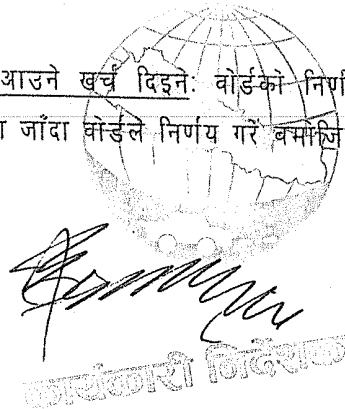 आउने खर्च दिइनेः वोर्डको निर्ण
ा जाँदा वोर्डले निर्णय गरे वमोजि
कार्यकारी निर्देशक